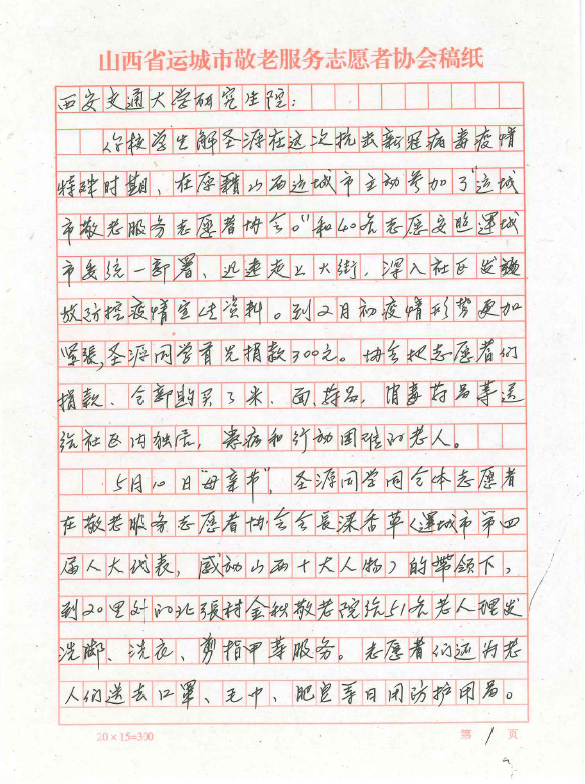 山西省运城市敬老服务志愿者协会稿纸
西安交通大学研究生院：
你校学生解圣源在这次抗击新冠病毒疫情
特殊时期、在原籍山西运城市主动参加了“运城
市敬老服务志愿者协会。”和40名志愿安照運城
市委统一部署、迅速走上大街，深入社区发
放防控疫情宣传资料。到2月初疫情形势更加
紧張，圣源同学首先捐款300元。协会把志愿者们
捐款、全部购买了米、面、药品，消毒药品等送
给社区内独居，患病和行动困难的老人。
5月10日“母亲节”，圣源同学同全体志愿者
在敬老服务志愿者协会会長梁香草（運城市第四
届人大代表，感动山西十大人物）的带领下，
到20里外的北張村金秋敬老院给51名老人理发
洗脚、洗衣、剪指甲等服务。志愿者们还为老
人们送去口罩、毛巾、肥皂等日用防护用品。
20×15=300 第 1 页